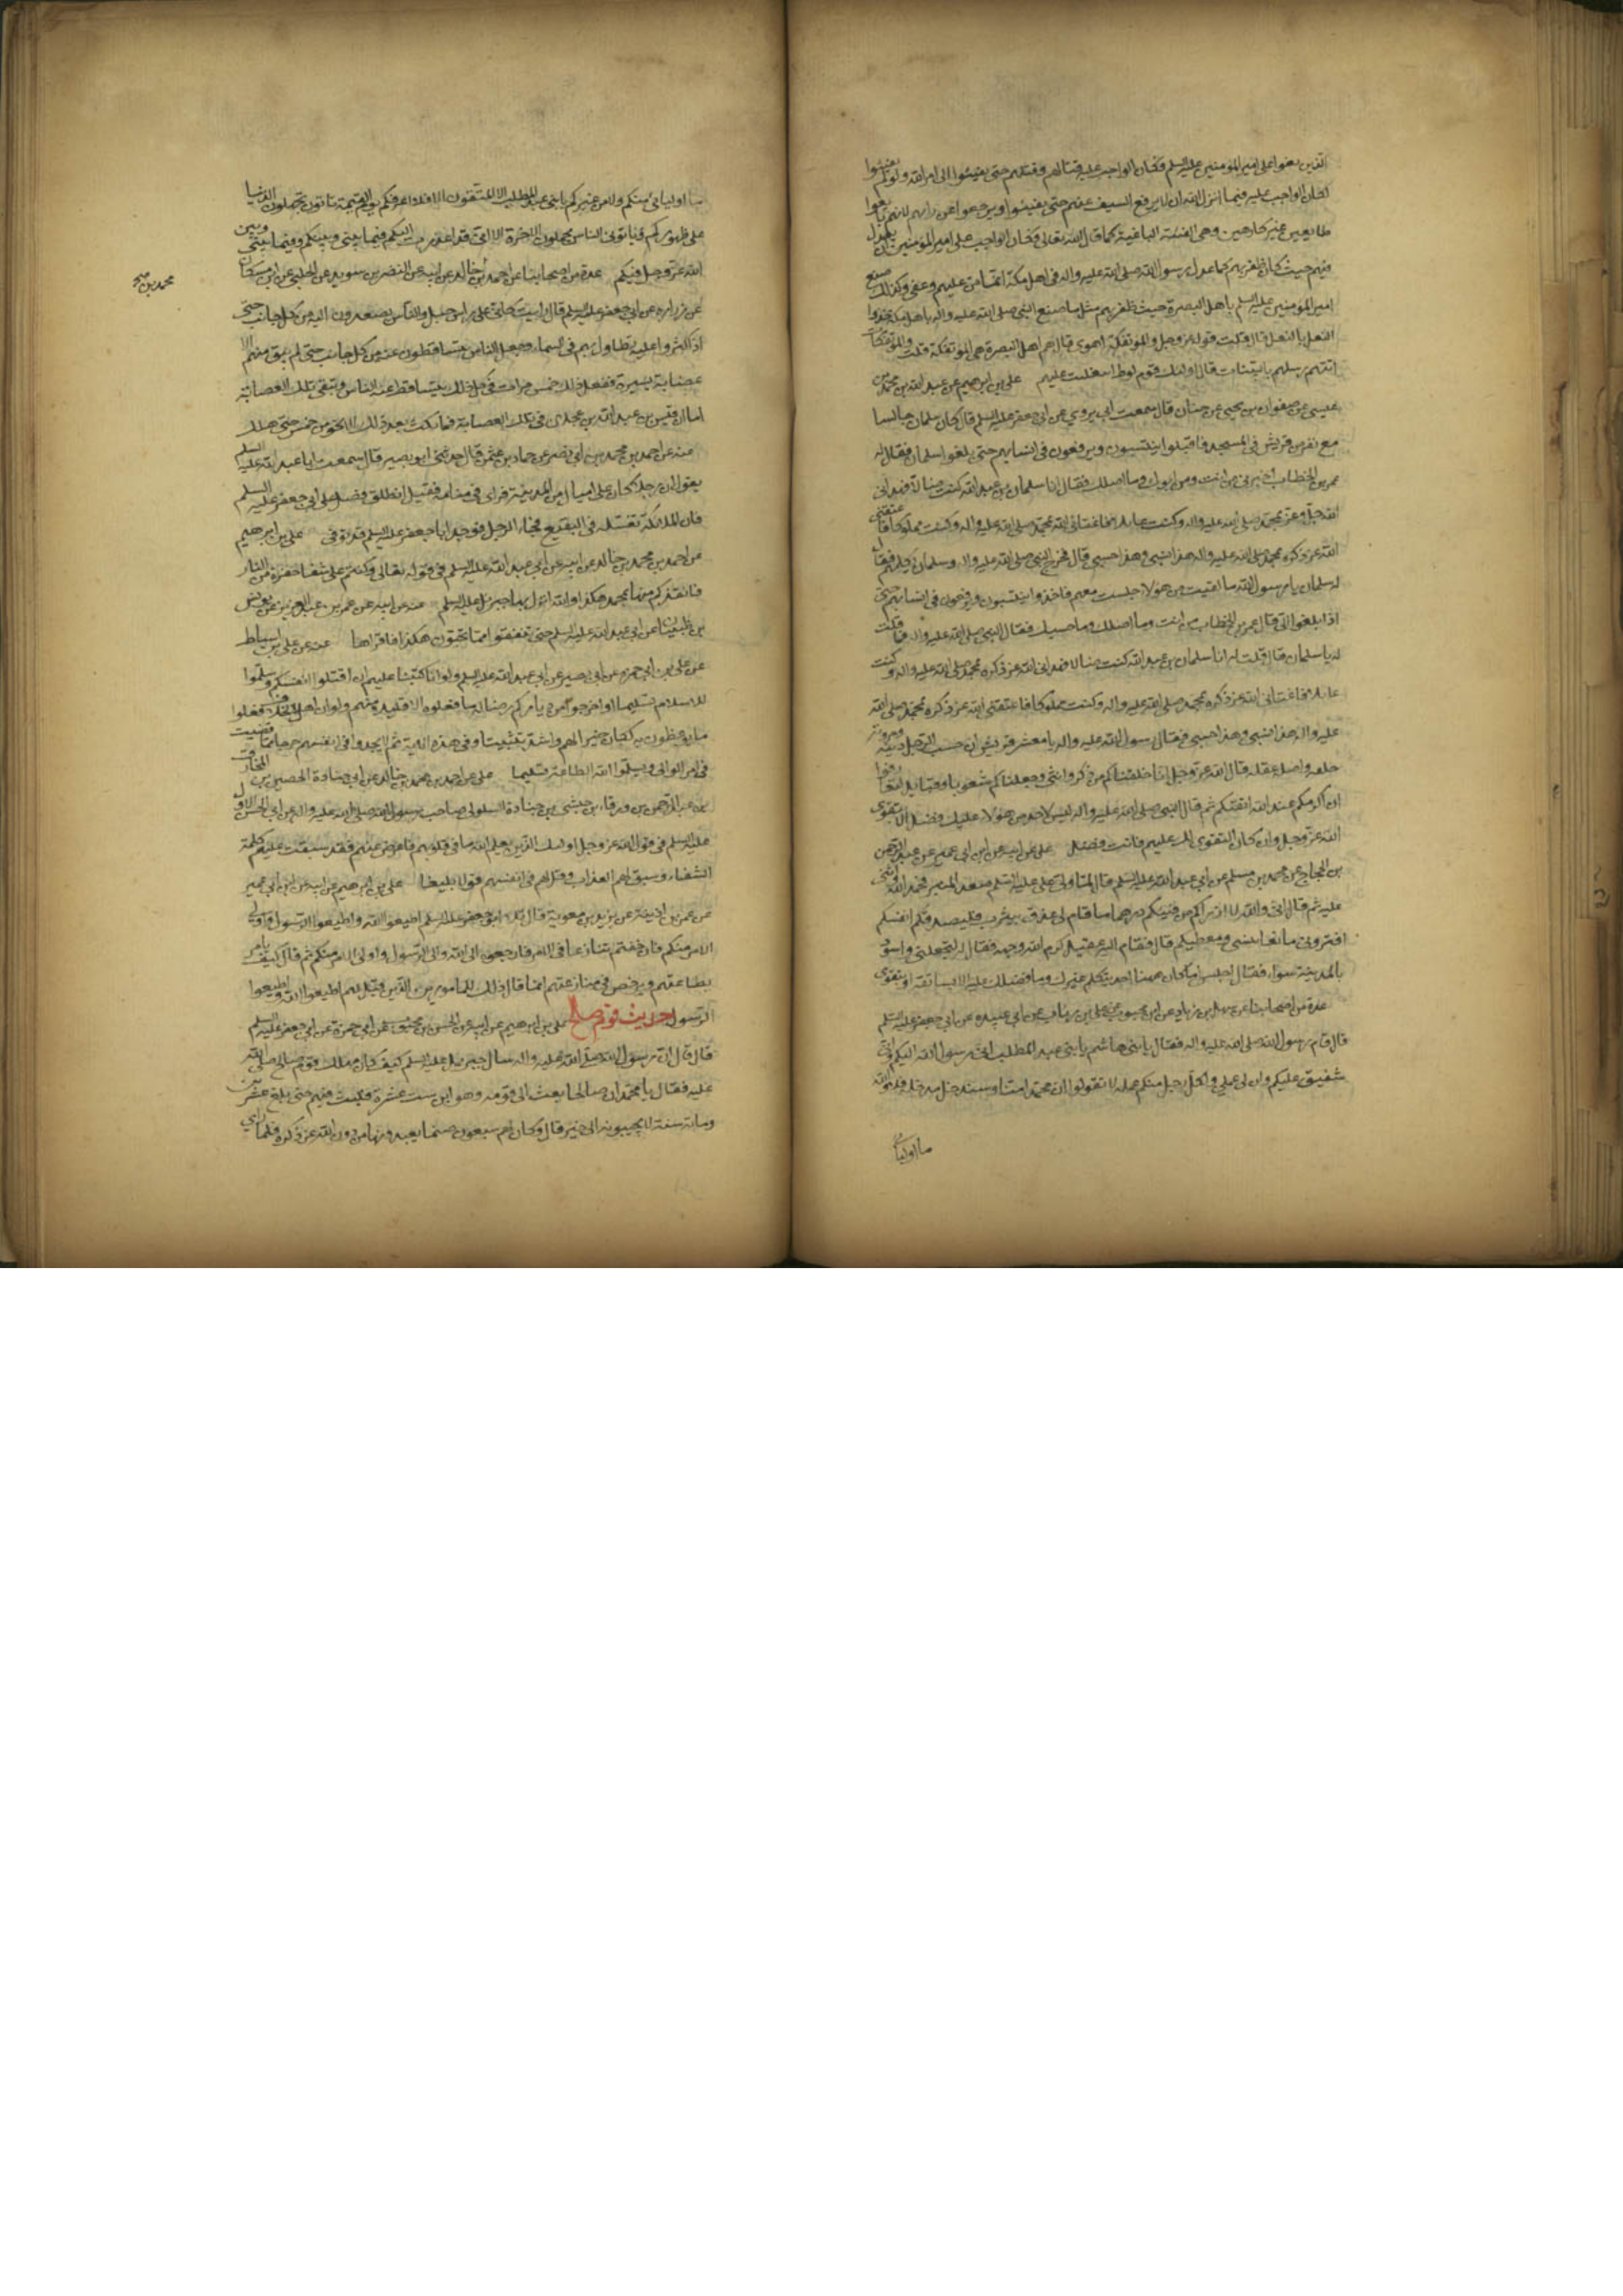 الذين بغوا على امير المؤمنين عليه السلم فكان الواجب عليه قتالهم وقتلهم حتى يفيئوا الى امر الله ولو لم يفيئوا
لكان الواجب عليه فيما انزل الله ان لا يرفع السيف عنهم حتى يفيئوا ويرجعوا عن رايهم لانهم بايعوا
طايعين غير كارهين وهى الفئة الباغية كما قال الله تعالى فكان الواجب على امير المؤمنين ان يعدل
فيهم حيث كان ظفر بهم كما عدل رسول الله صلى الله عليه واله فى اهل مكة انما من عليهم وعفى وكذلك صنع
امير المؤمنين عليه السلم باهل البصرة حيث ظفر بهم مثل ما صنع النبى صلى الله عليه واله باهل مكة حذوا
النعل بالنعل قال قلت قوله عز وجل والمؤتفكة اهوى قال هم اهل البصرة هى المؤتفكة قلت والمؤتفكات
اتتهم رسلهم بالبينات قال اولئك قوم لوط على بن ابرهيم عن عبد الله بن محمد بن
عيسى عن صفوان بن يحيى عن حنان قال سمعت ابى يروى عن ابى جعفر عليه السلم قال كان سلمان جالسا
مع نفر من قريش فى المسجد فاقبلوا ينتسبون ويرفعون فى انسابهم حتى بلغوا سلمان فقال له
عمر بن الخطاب اخبرنى من انت ومن ابوك وما اصلك فقال انا سلمان بن عبد الله كنت ضالا فهدانى
الله جل وعز بمحمد صلى الله عليه واله وكنت عايلا فاغنانى الله بمحمد صلى الله عليه واله وكنت مملوكا فاعتقنى
الله عز ذكره بمحمد صلى الله عليه واله هذا نسبى وهذا حسبى قال فخرج النبى صلى الله عليه واله وسلمان يكلمهم فقال
له سلمان يا رسول الله ما لقيت من هؤلاء جلست معهم فاخذوا ينتسبون ويرفعون فى انسابهم حتى
اذا بلغوا الى قال عمر بن الخطاب من انت وما اصلك وما حسبك فقال النبى صلى الله عليه واله فما قلت
له يا سلمان قال قلت له انا سلمان بن عبد الله كنت ضالا فهدانى الله عز ذكره بمحمد صلى الله عليه واله وكنت
عايلا فاغنانى الله عز ذكره بمحمد صلى الله عليه واله وكنت مملوكا فاعتقنى الله عز ذكره بمحمد صلى الله
عليه واله هذا نسبى وهذا حسبى فقال رسول الله عليه واله يا معشر قريش ان حسب الرجل دينه ومروته
خلقه واصله عقله قال الله عز وجل انا خلقناكم من ذكر وانثى وجعلناكم شعوبا وقبايل لتعارفوا
ان اكرمكم عند الله اتقيكم ثم قال النبى صلى الله عليه واله ليس لاحد من هؤلاء عليك فضل الا بتقوى
الله عز وجل وان كان التقوى لك عليهم فانت افضل على عن ابيه عن ابن ابى عمير عن عبد الرحمن
بن الحجاج عن محمد بن مسلم عن ابى عبد الله عليه السلم قال لما ولى على عليه السلم صعد المنبر فحمد الله واثنى
عليه ثم قال انى والله لا ارزاكم من فيئكم درهما ما قام لى عذق بيثرب فليصدقكم انفسكم
افترونى مانعا نفسى ومعطيكم قال فقام اليه عقيل كرم الله وجهه فقال له لتجعلنى واسود
بالمدينة سواء فقال اجلس اما كان ههنا احد يتكلم غيرك وما فضلك عليه الا بسابقة او بتقوى
عدة من اصحابنا عن سهل بن زياد عن ابن محبوب عن على بن رئاب عن ابى عبيده عن ابى جعفر عليه السلم
قال قام رسول الله صلى الله عليه واله فقال يا بنى هاشم يا بنى عبد المطلب انى رسول الله اليكم وانى
شفيق عليكم وان لى عملى ولكل رجل منكم عمله لا تقولوا ان محمدا منا وسندخل مدخله فلا والله
ما اوليائى
ما اوليائى منكم ولا من غيركم يا بنى عبد المطلب الا المتقون الا فلا اعرفكم يوم القيمة تاتون تحملون الدنيا
على ظهوركم وياتونى الناس يحملون الاخرة الا انى قد اعذرت اليكم فيما بينى وبينكم وفيما بينى وبين
الله عز وجل فيكم عدة من اصحابنا عن احمد بن محمد بن خالد عن ابيه عن النضر بن سويد عن الحلبى عن ابن مسكان
عن زراره عن ابى جعفر عليه السلم قال رايت كانى على راس جبل والناس يصعدون اليه من كل جانب حتى
اذا كثروا عليه تطاول بهم فى السماء وجعل الناس يتساقطون عنه من كل جانب حتى لم يبق منهم الا
عصابة يسيرة ففعل ذلك خمس مرات فى كل ذلك يتساقط عنه الناس وتبقى تلك العصابة
اما ان قيس بن عبد الله بن عجلان فى تلك العصابة فما مكث بعد ذلك الا نحو من خمس حتى هلك
عنه عن احمد بن محمد بن ابى نصر عن حماد بن عثمن قال حدثنى ابو بصير قال سمعت ابا عبد الله عليه السلم
يقول ان رجلا كان على اميال من المدينة فراى فى منامه فقيل له انطلق فصل على ابى جعفر عليه السلم
فان الملائكة تغسله فى البقيع فجاء الرجل فوجد ابا جعفر عليه السلم قد توفى على بن ابرهيم
عن احمد بن محمد بن خالد عن ابيه عن ابى عبد الله عليه السلم فى قوله تعالى وكنتم على شفا حفرة من النار
فانقذكم منها بمحمد هكذا والله انزل بها جبرئيل عليه السلم عنه عن ابيه عن عمر بن عبد العزيز عن يونس
بن ظبيان عن ابى عبد الله عليه السلم لن تنالوا البر حتى تنفقوا مما تحبون هكذا فاقراها عنه عن على بن اسباط
عن على بن ابى حمزه عن ابى بصير عن ابى عبد الله عليه السلم ولو انا كتبنا عليهم ان اقتلوا انفسكم وسلموا
للامام تسليما او اخرجوا من دياركم رضا له ما فعلوه الا قليل منهم ولو ان اهل الخلاف فعلوا
ما يوعظون به لكان خيرا لهم واشد تثبيتا وفى هذه الاية ثم لا يجدوا فى انفسهم حرجا مما قضيت
فى امر الوالى ويسلموا لله الطاعة تسليما على عن احمد بن محمد بن خالد عن ابى جنادة الحصين بن المخارق
بن عبد الرحمن بن ورقاء بن حبشى بن جنادة السلولى صاحب رسول الله صلى الله عليه واله عن ابى الحسن الاول
عليه السلم فى قول الله عز وجل اولئك الذين يعلم الله ما فى قلوبهم فاعرض عنهم فقد سبقت عليهم كلمة
الشقاء وسبق لهم العذاب وقل لهم فى انفسهم قولا بليغا على بن ابرهيم عن ابيه عن ابن ابى عمير
عن عمر بن اذينة عن بريد بن معوية قال تلا ابو جعفر عليه السلم اطيعوا الله واطيعوا الرسول واولى
الامر منكم فان خفتم تنازعا فى الامر فارجعوه الى الله والى الرسول والى اولى الامر منكم ثم قال كيف يامر
بطاعتهم ويرخص فى منازعتهم انما قال ذلك للمامورين الذين قيل لهم اطيعوا الله واطيعوا
الرسول حديث قوم صالح على بن ابرهيم عن ابيه عن الحسن بن محبوب عن ابى حمزة عن ابى جعفر عليه السلم
قال قال ان رسول الله صلى الله عليه واله سال جبرئيل عليه السلم كيف كان مهلك قوم صالح صلى الله
عليه فقال يا محمد ان صالحا بعث الى قومه وهو ابن ست عشرة فلبث فيهم حتى بلغ عشرين
ومائة سنة لا يجيبونه الى خير قال وكان لهم سبعون صنما يعبدونها من دون الله عز ذكره فلما راى
محمد بن